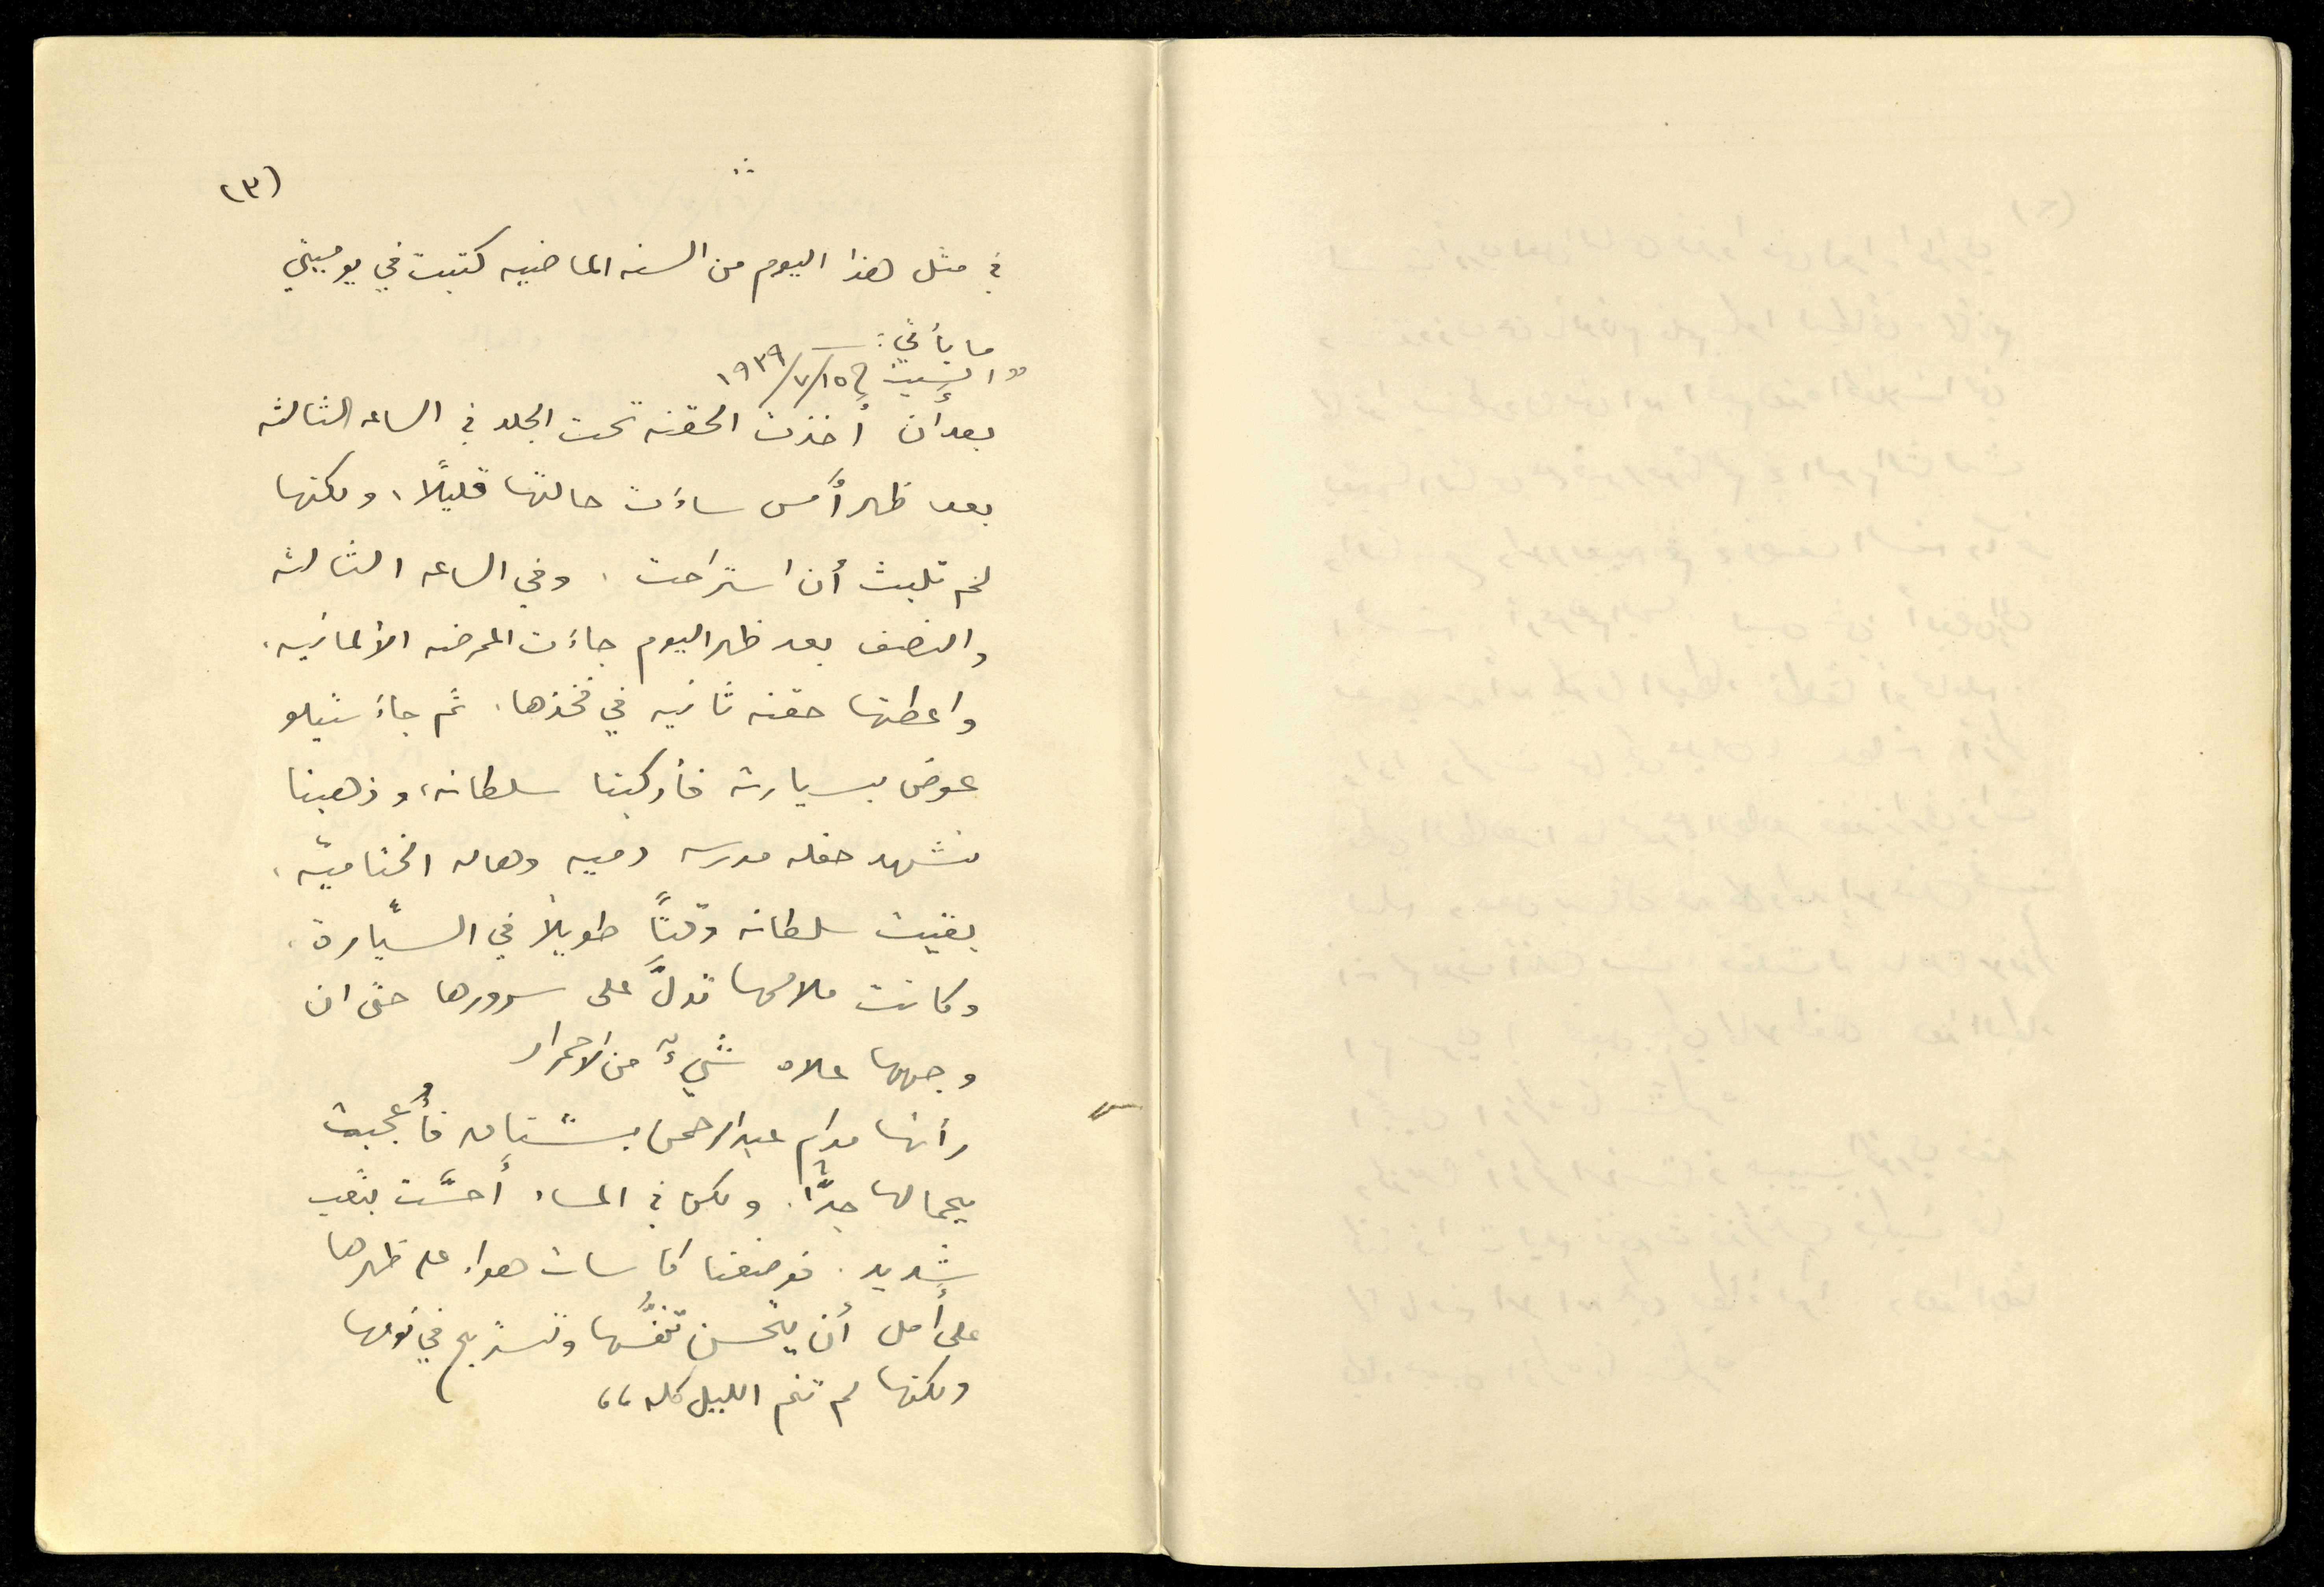 (٣)
في مثل هذا اليوم من السنه الماضيه كتبت في يوميتي
ما يأتي: —
"السبت في ١٥/٧/١٩٣٩
بعد أن أخذت الحقنه تحت الجلد في الساعه الثالثه
بعد ظهر أمس ساءت حالتها قليلاً، ولكنها
لم تلبث أن استراحت. وفي الساعه الثالثه
والنصف بعد ظهر اليوم جاءَت الممرضه الألمانيه.
واعطتها حقنه ثانيه في فخذها. ثم جاءَ شبلو
عوض بسيارته فأركبنا سلطانه، وذهبنا
نشهد حفله مدرسه دميه وهاله الختاميّه،
بقيت سلطانه وقتاً طويلاً في السيّارة.
وكانت ملامحها تدلُّ على سرورها حتى ان
وجهها علاه شيءٌ من الاحمرار
رأتها مدام عبد الرحمن بستاني فأُعجبت
بجمالها جدًّا. ولكن في المساء أحسَّت بتعب
شديد. فوضعنا كاسات هواء على ظهرها
على أمل أن يتحسن تنفُّسها وتستريح في نومها
ولكنها لم تنم الليل كله"